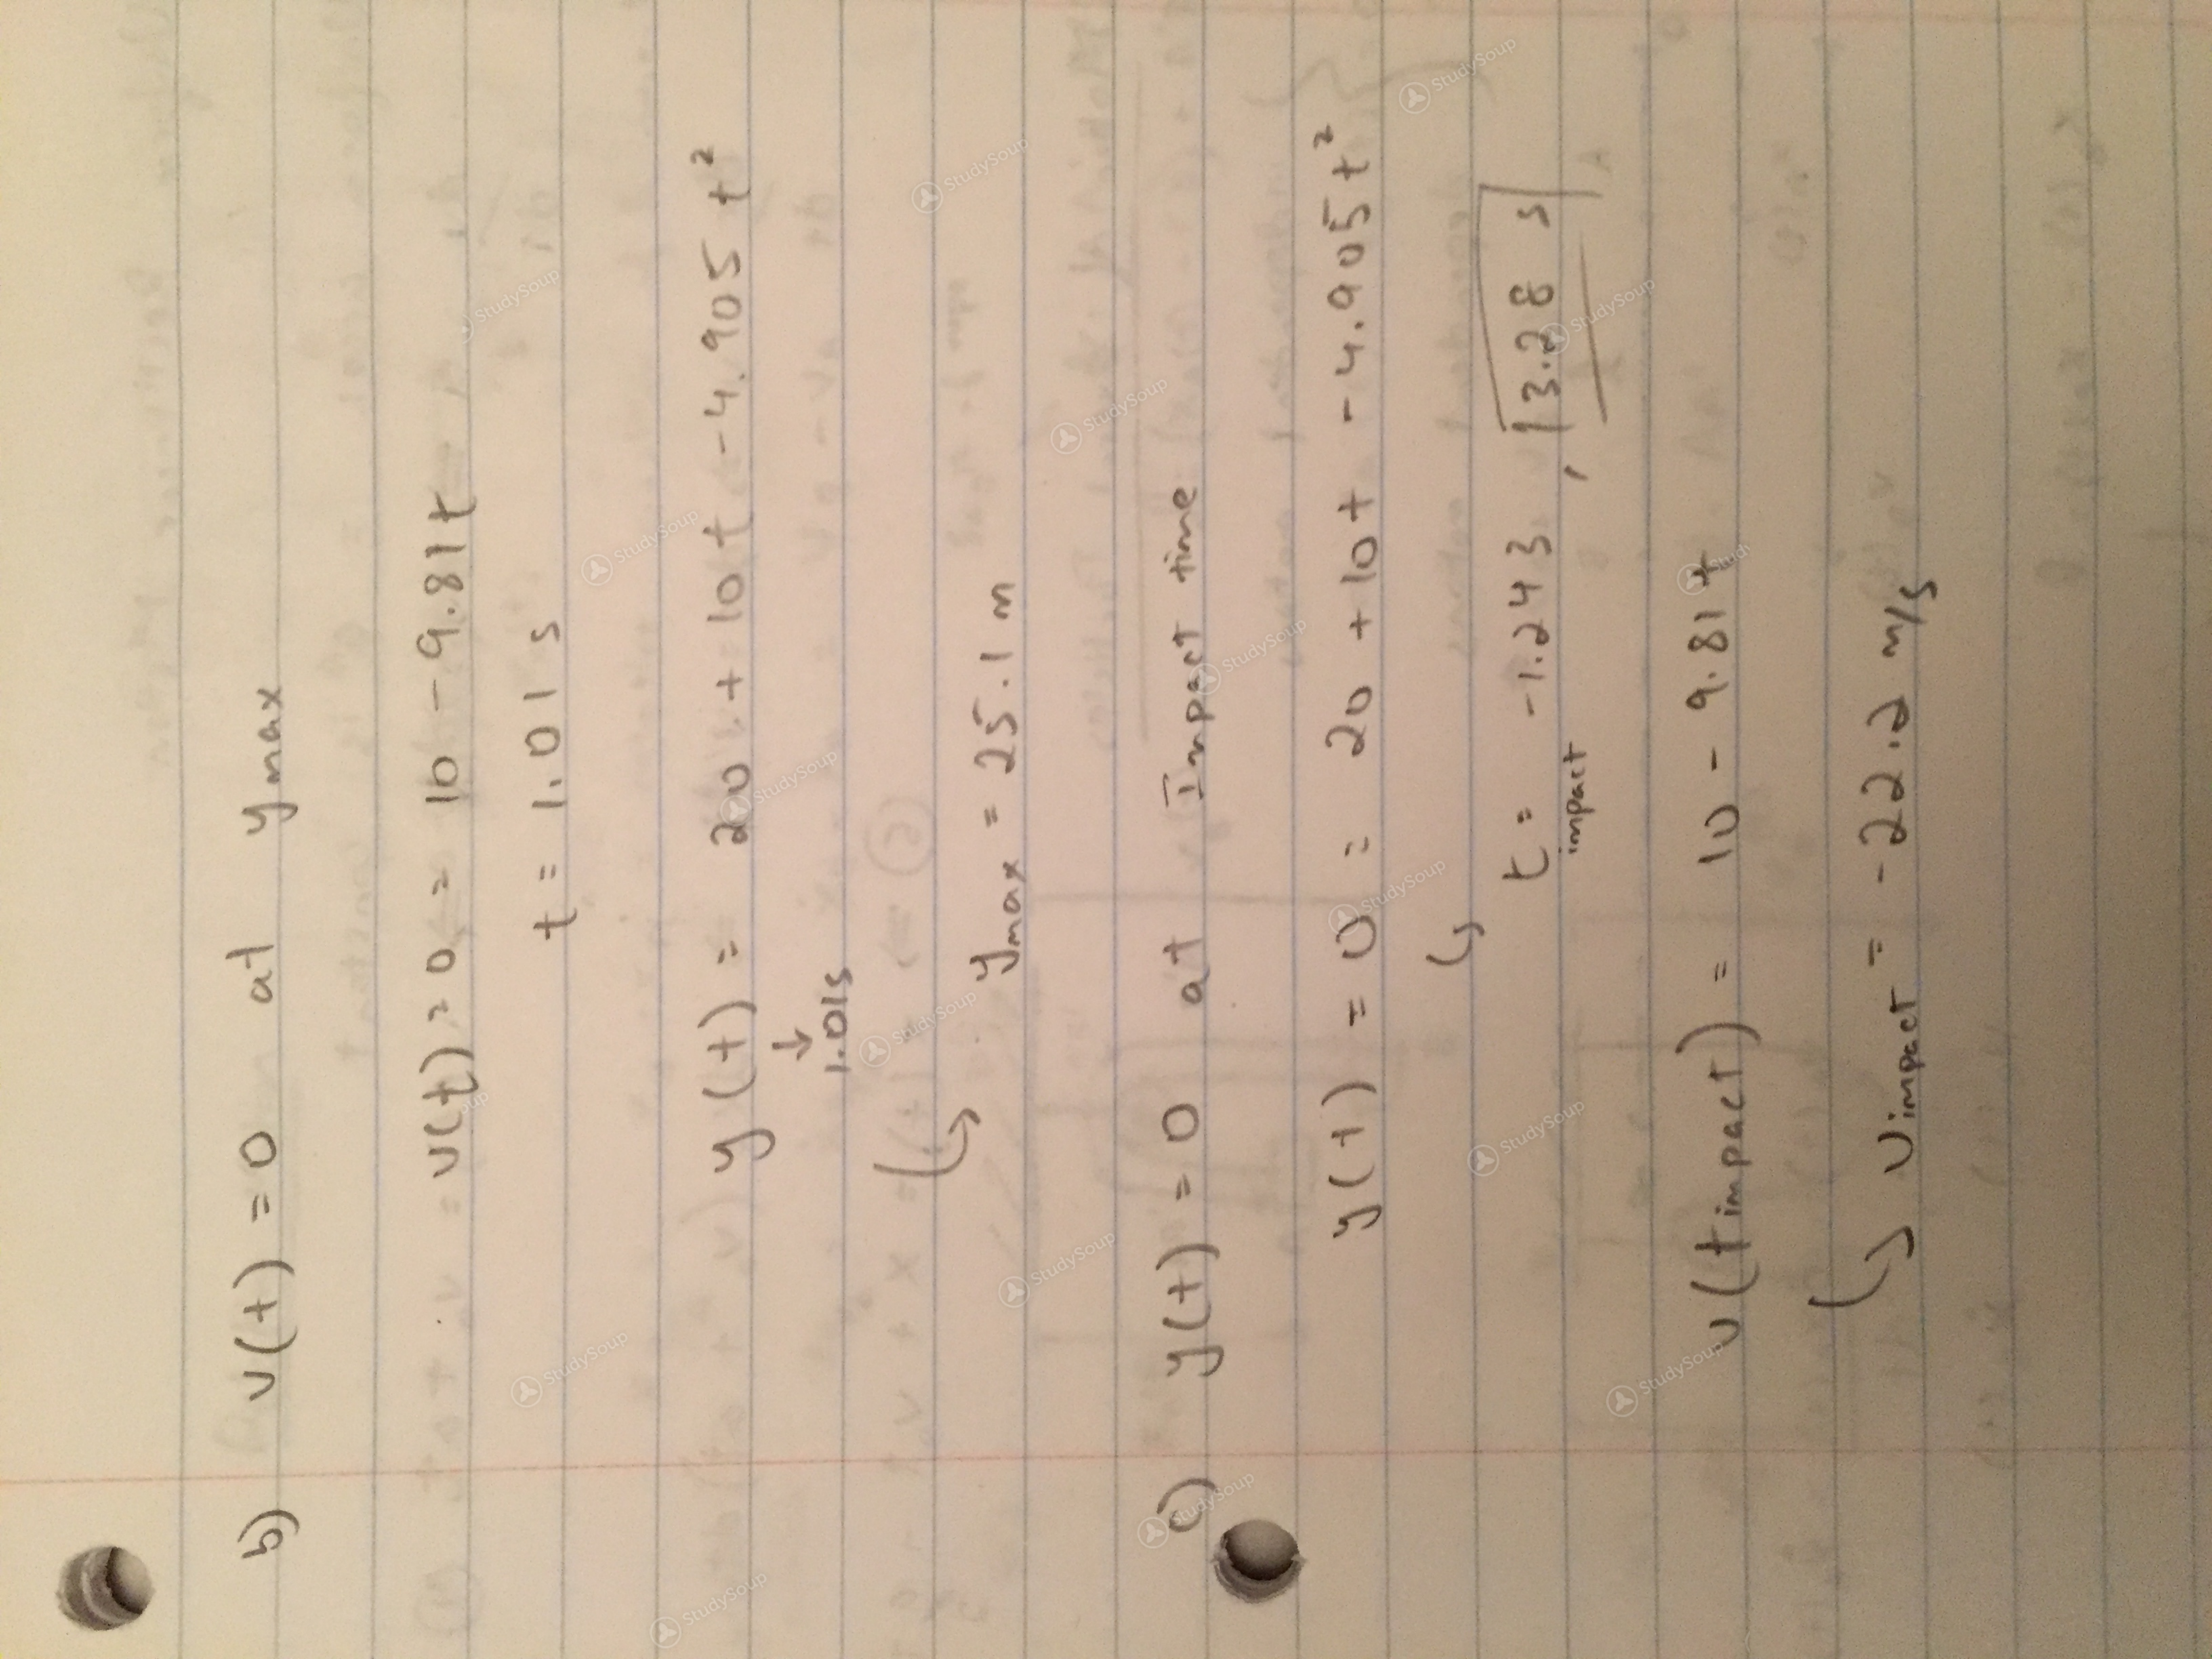 b) v(t) = 0 at ymax
v(t) = 0 = 10 - 9.81t
t = 1.01 s
y(t) = 20 + 10t - 4.905t²
↓
1.01s
↪ ymax = 25.1 m
c) y(t) = 0 at Impact time
y(t) = 0 = 20 + 10t - 4.905t²
↪ t impact = -1.243, 3.28 s
v(timpact) = 10 - 9.81t
↪ vimpact = -22.2 m/s
StudySoup